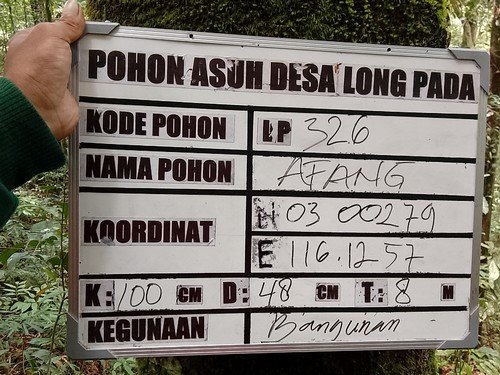 POHON ASUH DESA LONG PADA
KODE POHON LP 326
NAMA POHON AFANG
KOORDINAT N 03 00279
E 116.12 57
K: 100 CM D: 48 CM T: 8 M
KEGUNAAN Bangunan